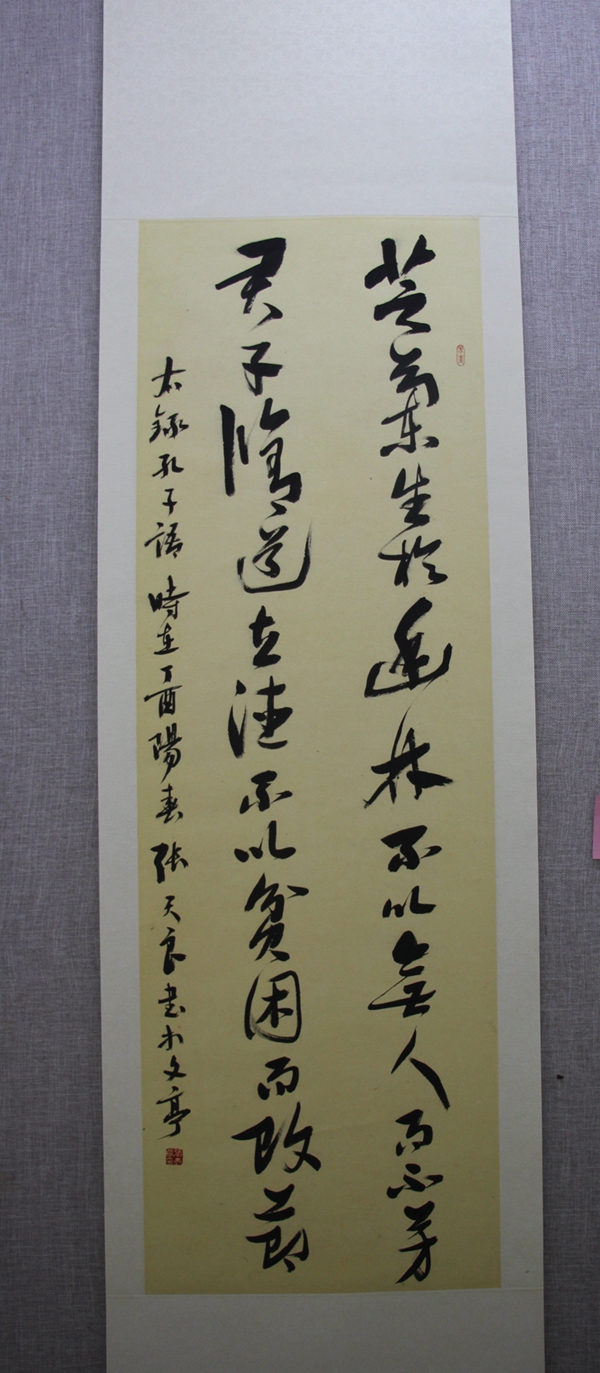 芝蘭生於幽林不以無人而不芳
君子脩道立德不以貧困而改節
右錄孔子語 時在丁酉陽春 張天良書於文亭